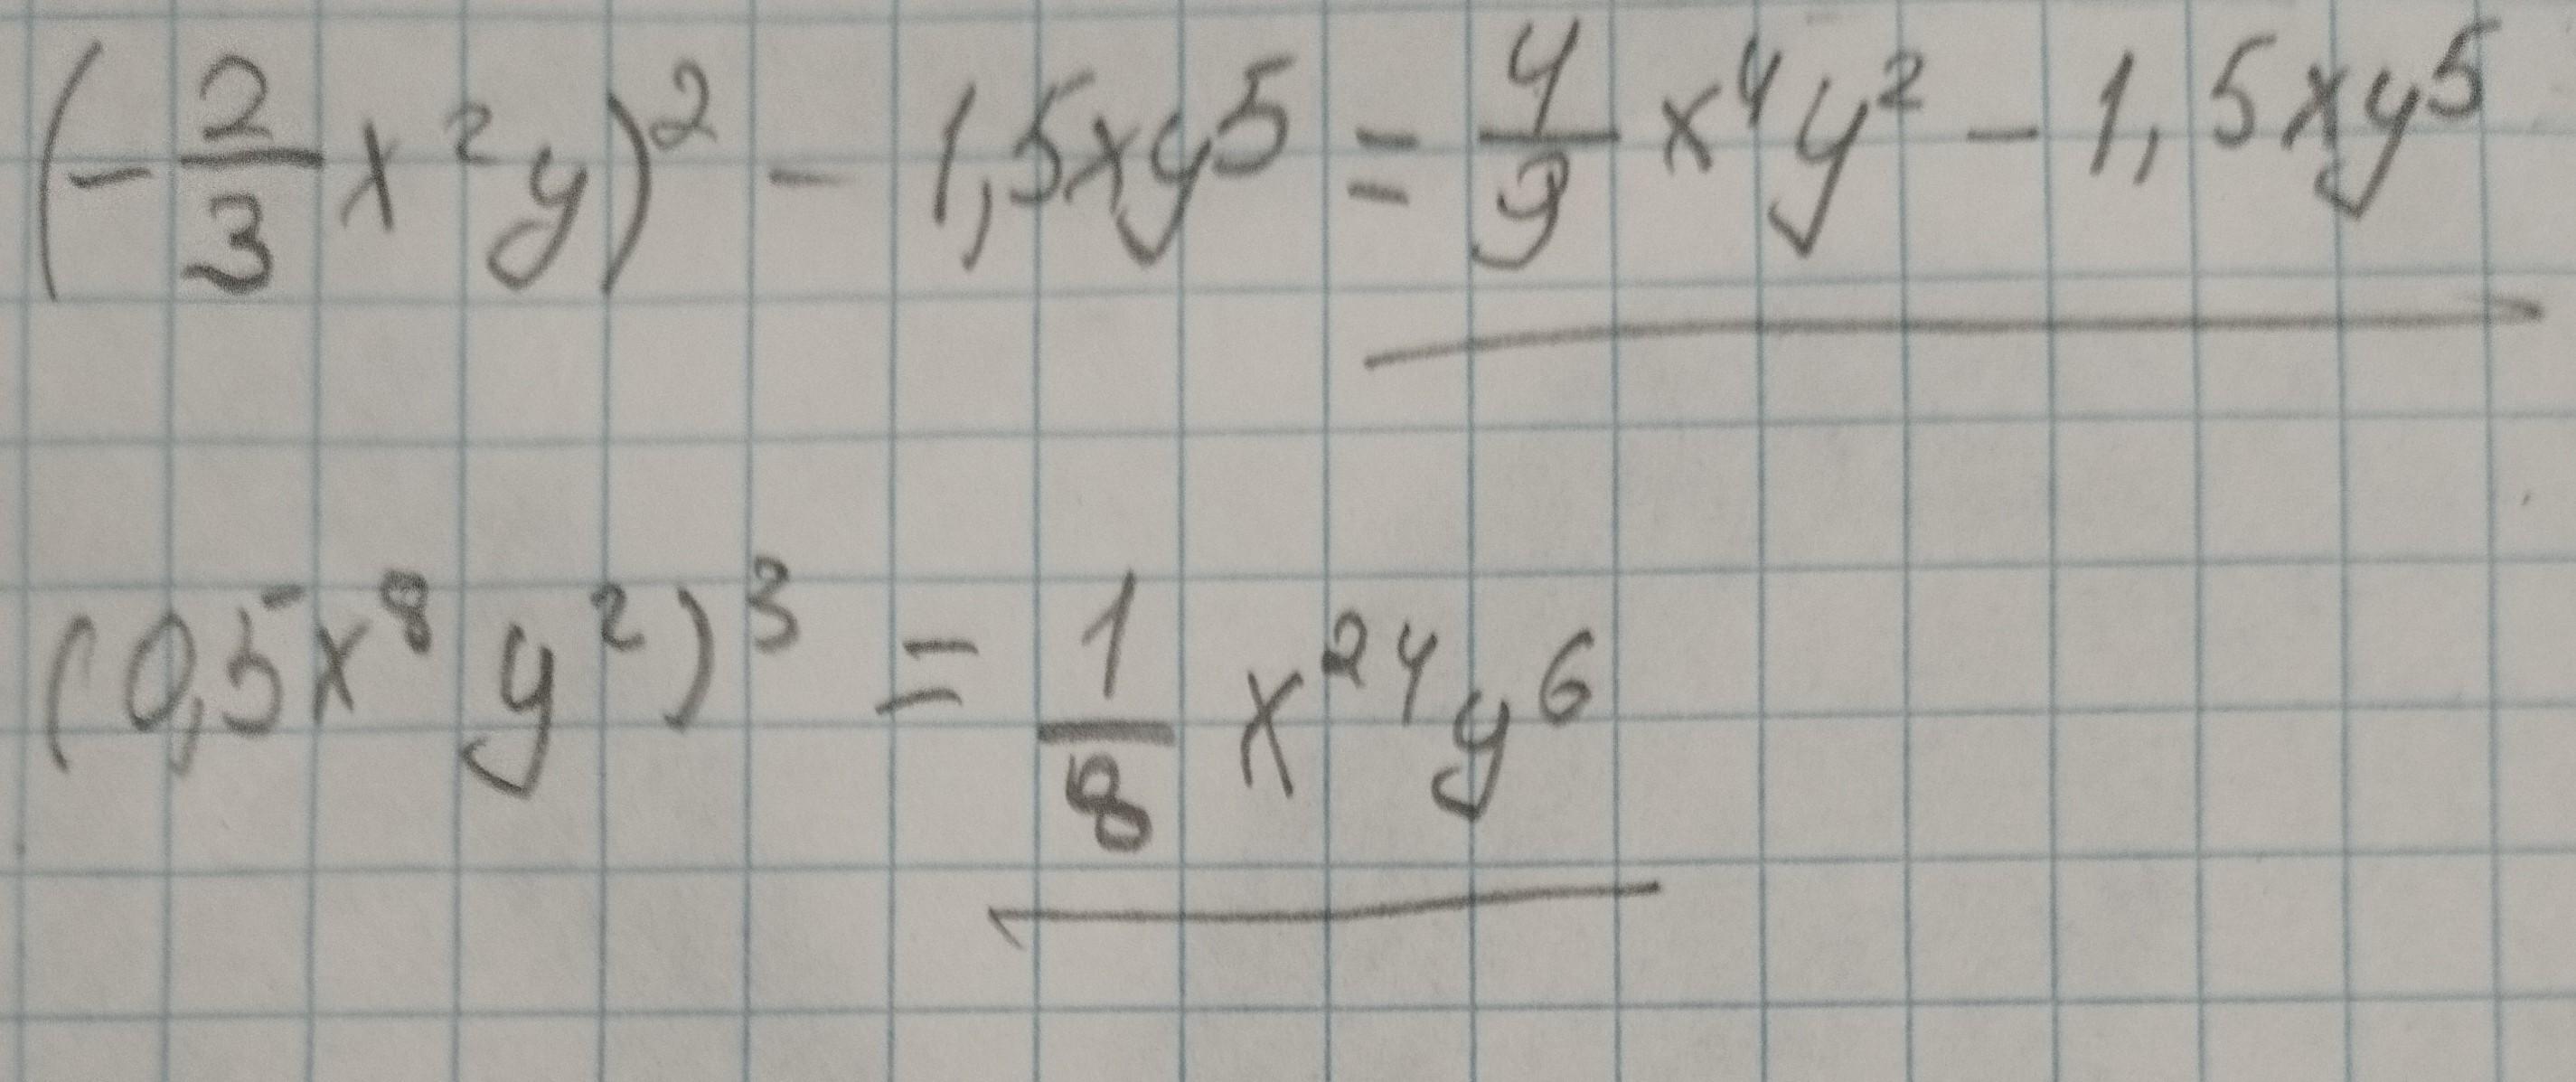 (-2/3 x²y)² - 1,5xy⁵ = 4/9 x⁴y² - 1,5xy⁵
(0,5x⁸y²)³ = 1/8 x²⁴y⁶